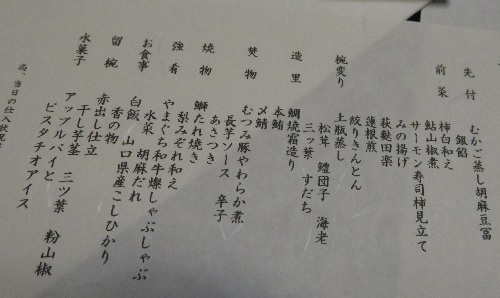 先付
むかご蒸し胡麻豆冨
銀餡
前菜
柿白和え
鮎山椒煮
サーモン寿司柿見立て
みの揚げ
萩麩田楽
蓮根煎
絞りきんとん
椀変り
上瓶蒸し
松茸 鱧団子 海老
三ッ葉 すだち
造里
鯛焼霜造り
本鮪
〆鯖
焚物
むつみ豚やわらか煮
長芋ソース 辛子
あさつき
焼物
鰤たれ焼き
梨みぞれ和え
強肴
やまぐち和牛燦しゃぶしゃぶ
水菜 胡麻だれ
お食事
白飯 山口県産こしひかり
香の物
留椀
赤出し仕立
干し芋茎 三ツ葉 粉山椒
水菓子
アップルパイと
ピスタチオアイス
尚、当日の仕入状況